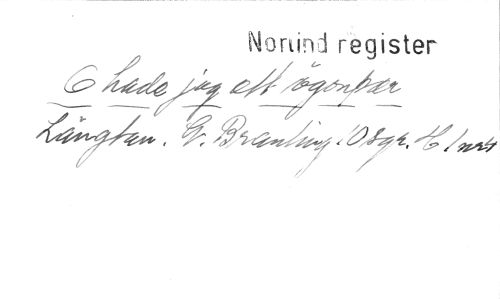 Norlind register
O hade jag ett ögonpar
Längtan. G. Branting. Osgr. H. 1 nr 4